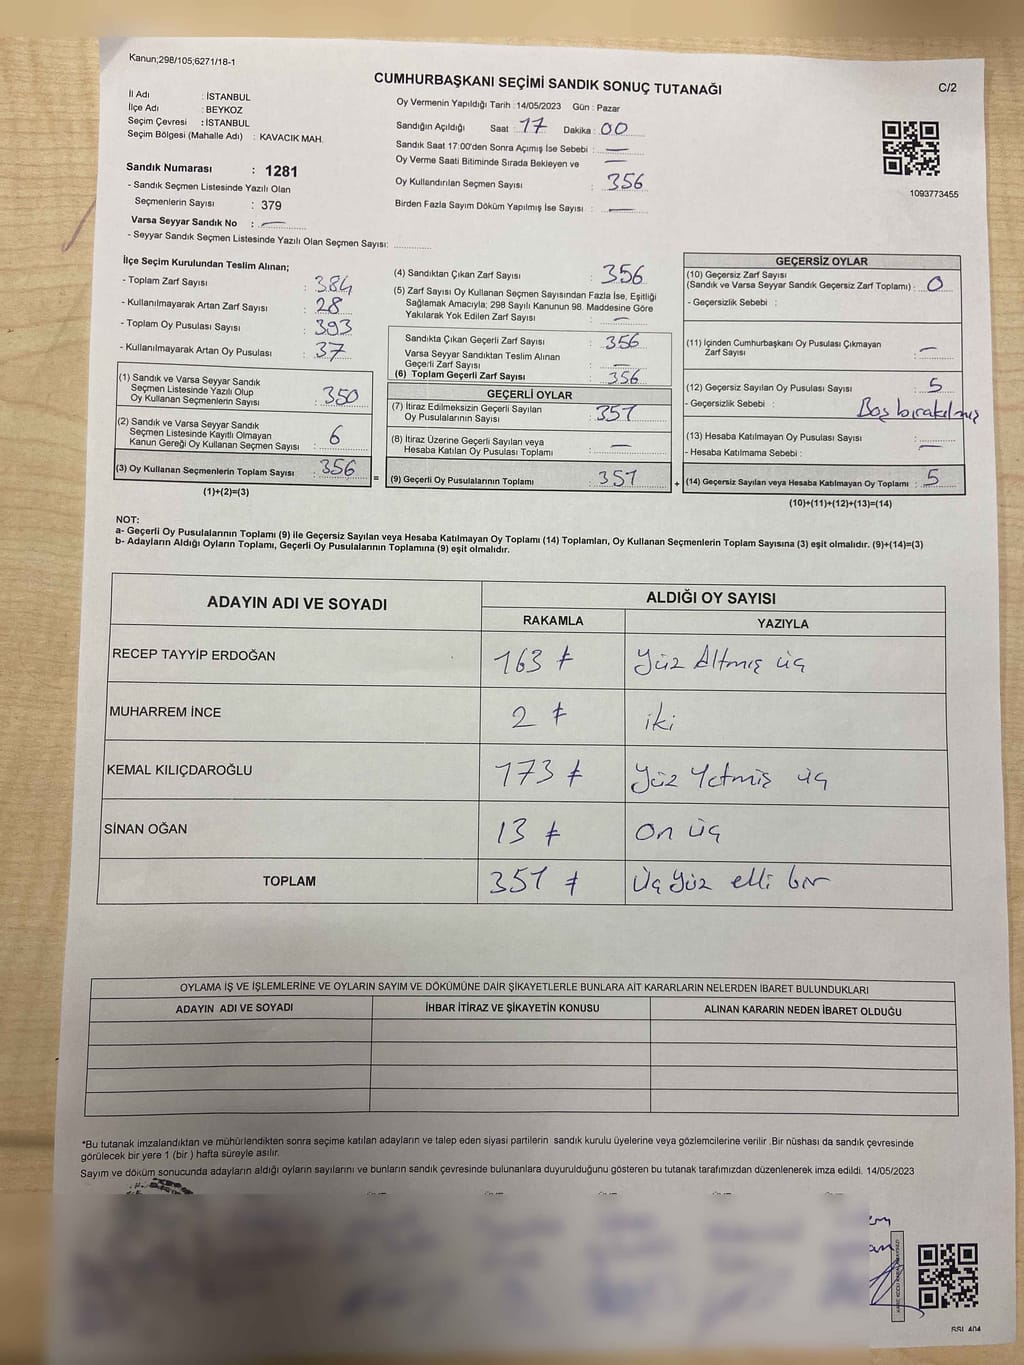 Kanun;298/105;6271/18-1
CUMHURBAŞKANI SEÇİMİ SANDIK SONUÇ TUTANAĞI
C/2
İl Adı : İSTANBUL
İlçe Adı : BEYKOZ
Seçim Çevresi : İSTANBUL
Seçim Bölgesi (Mahalle Adı) : KAVACIK MAH.
Sandık Numarası : 1281
- Sandık Seçmen Listesinde Yazılı Olan
Seçmenlerin Sayısı : 379
Varsa Seyyar Sandık No : —
- Seyyar Sandık Seçmen Listesinde Yazılı Olan Seçmen Sayısı:
Oy Vermenin Yapıldığı Tarih : 14/05/2023 Gün : Pazar
Sandığın Açıldığı Saat : 17 Dakika : 00
Sandık Saat 17:00'den Sonra Açımış İse Sebebi : —
Oy Verme Saati Bitiminde Sırada Bekleyen ve —
Oy Kullandırılan Seçmen Sayısı : 356
Birden Fazla Sayım Döküm Yapılmış İse Sayısı : —
1093773455
İlçe Seçim Kurulundan Teslim Alınan;
- Toplam Zarf Sayısı : 384
- Kullanılmayarak Artan Zarf Sayısı : 28
- Toplam Oy Pusulası Sayısı : 393
- Kullanılmayarak Artan Oy Pusulası : 37
(1) Sandık ve Varsa Seyyar Sandık
Seçmen Listesinde Yazılı Olup
Oy Kullanan Seçmenlerin Sayısı : 350
(2) Sandık ve Varsa Seyyar Sandık
Seçmen Listesinde Kayıtlı Olmayan
Kanun Gereği Oy Kullanan Seçmen Sayısı : 6
(3) Oy Kullanan Seçmenlerin Toplam Sayısı : 356
(1)+(2)=(3)
(4) Sandıktan Çıkan Zarf Sayısı : 356
(5) Zarf Sayısı Oy Kullanan Seçmen Sayısından Fazla İse, Eşitliği
Sağlamak Amacıyla; 298 Sayılı Kanunun 98. Maddesine Göre
Yakılarak Yok Edilen Zarf Sayısı : —
Sandıkta Çıkan Geçerli Zarf Sayısı : 356
Varsa Seyyar Sandıktan Teslim Alınan
Geçerli Zarf Sayısı : —
(6) Toplam Geçerli Zarf Sayısı : 356
=
GEÇERLİ OYLAR
(7) İtiraz Edilmeksizin Geçerli Sayılan
Oy Pusulalarının Sayısı : 351
(8) İtiraz Üzerine Geçerli Sayılan veya
Hesaba Katılan Oy Pusulası Toplamı : —
(9) Geçerli Oy Pusulalarının Toplamı : 351
+
GEÇERSİZ OYLAR
(10) Geçersiz Zarf Sayısı
(Sandık ve Varsa Seyyar Sandık Geçersiz Zarf Toplamı) : 0
- Geçersizlik Sebebi :
(11) İçinden Cumhurbaşkanı Oy Pusulası Çıkmayan
Zarf Sayısı : —
(12) Geçersiz Sayılan Oy Pusulası Sayısı : 5
- Geçersizlik Sebebi : Boş bırakılmış
(13) Hesaba Katılmayan Oy Pusulası Sayısı : —
- Hesaba Katılmama Sebebi :
(14) Geçersiz Sayılan veya Hesaba Katılmayan Oy Toplamı : 5
(10)+(11)+(12)+(13)=(14)
NOT:
a- Geçerli Oy Pusulalarının Toplamı (9) ile Geçersiz Sayılan veya Hesaba Katılmayan Oy Toplamı (14) Toplamları, Oy Kullanan Seçmenlerin Toplam Sayısına (3) eşit olmalıdır. (9)+(14)=(3)
b- Adayların Aldığı Oyların Toplamı, Geçerli Oy Pusulalarının Toplamına (9) eşit olmalıdır.
ADAYIN ADI VE SOYADI
ALDIĞI OY SAYISI
RAKAMLA YAZIYLA
RECEP TAYYİP ERDOĞAN 163 Yüz Altmış üç
MUHARREM İNCE 2 iki
KEMAL KILIÇDAROĞLU 173 Yüz Yetmiş üç
SİNAN OĞAN 13 On üç
TOPLAM 351 Üç Yüz elli bir
OYLAMA İŞ VE İŞLEMLERİNE VE OYLARIN SAYIM VE DÖKÜMÜNE DAİR ŞİKAYETLERLE BUNLARA AİT KARARLARIN NELERDEN İBARET BULUNDUKLARI
ADAYIN ADI VE SOYADI İHBAR İTİRAZ VE ŞİKAYETİN KONUSU ALINAN KARARIN NEDEN İBARET OLDUĞU
*Bu tutanak imzalandıktan ve mühürlendikten sonra seçime katılan adayların ve talep eden siyasi partilerin sandık kurulu üyelerine veya gözlemcilerine verilir .Bir nüshası da sandık çevresinde
görülecek bir yere 1 (bir ) hafta süreyle asılır.
Sayım ve döküm sonucunda adayların aldığı oyların sayılarını ve bunların sandık çevresinde bulunanlara duyurulduğunu gösteren bu tutanak tarafımızdan düzenlenerek imza edildi. 14/05/2023